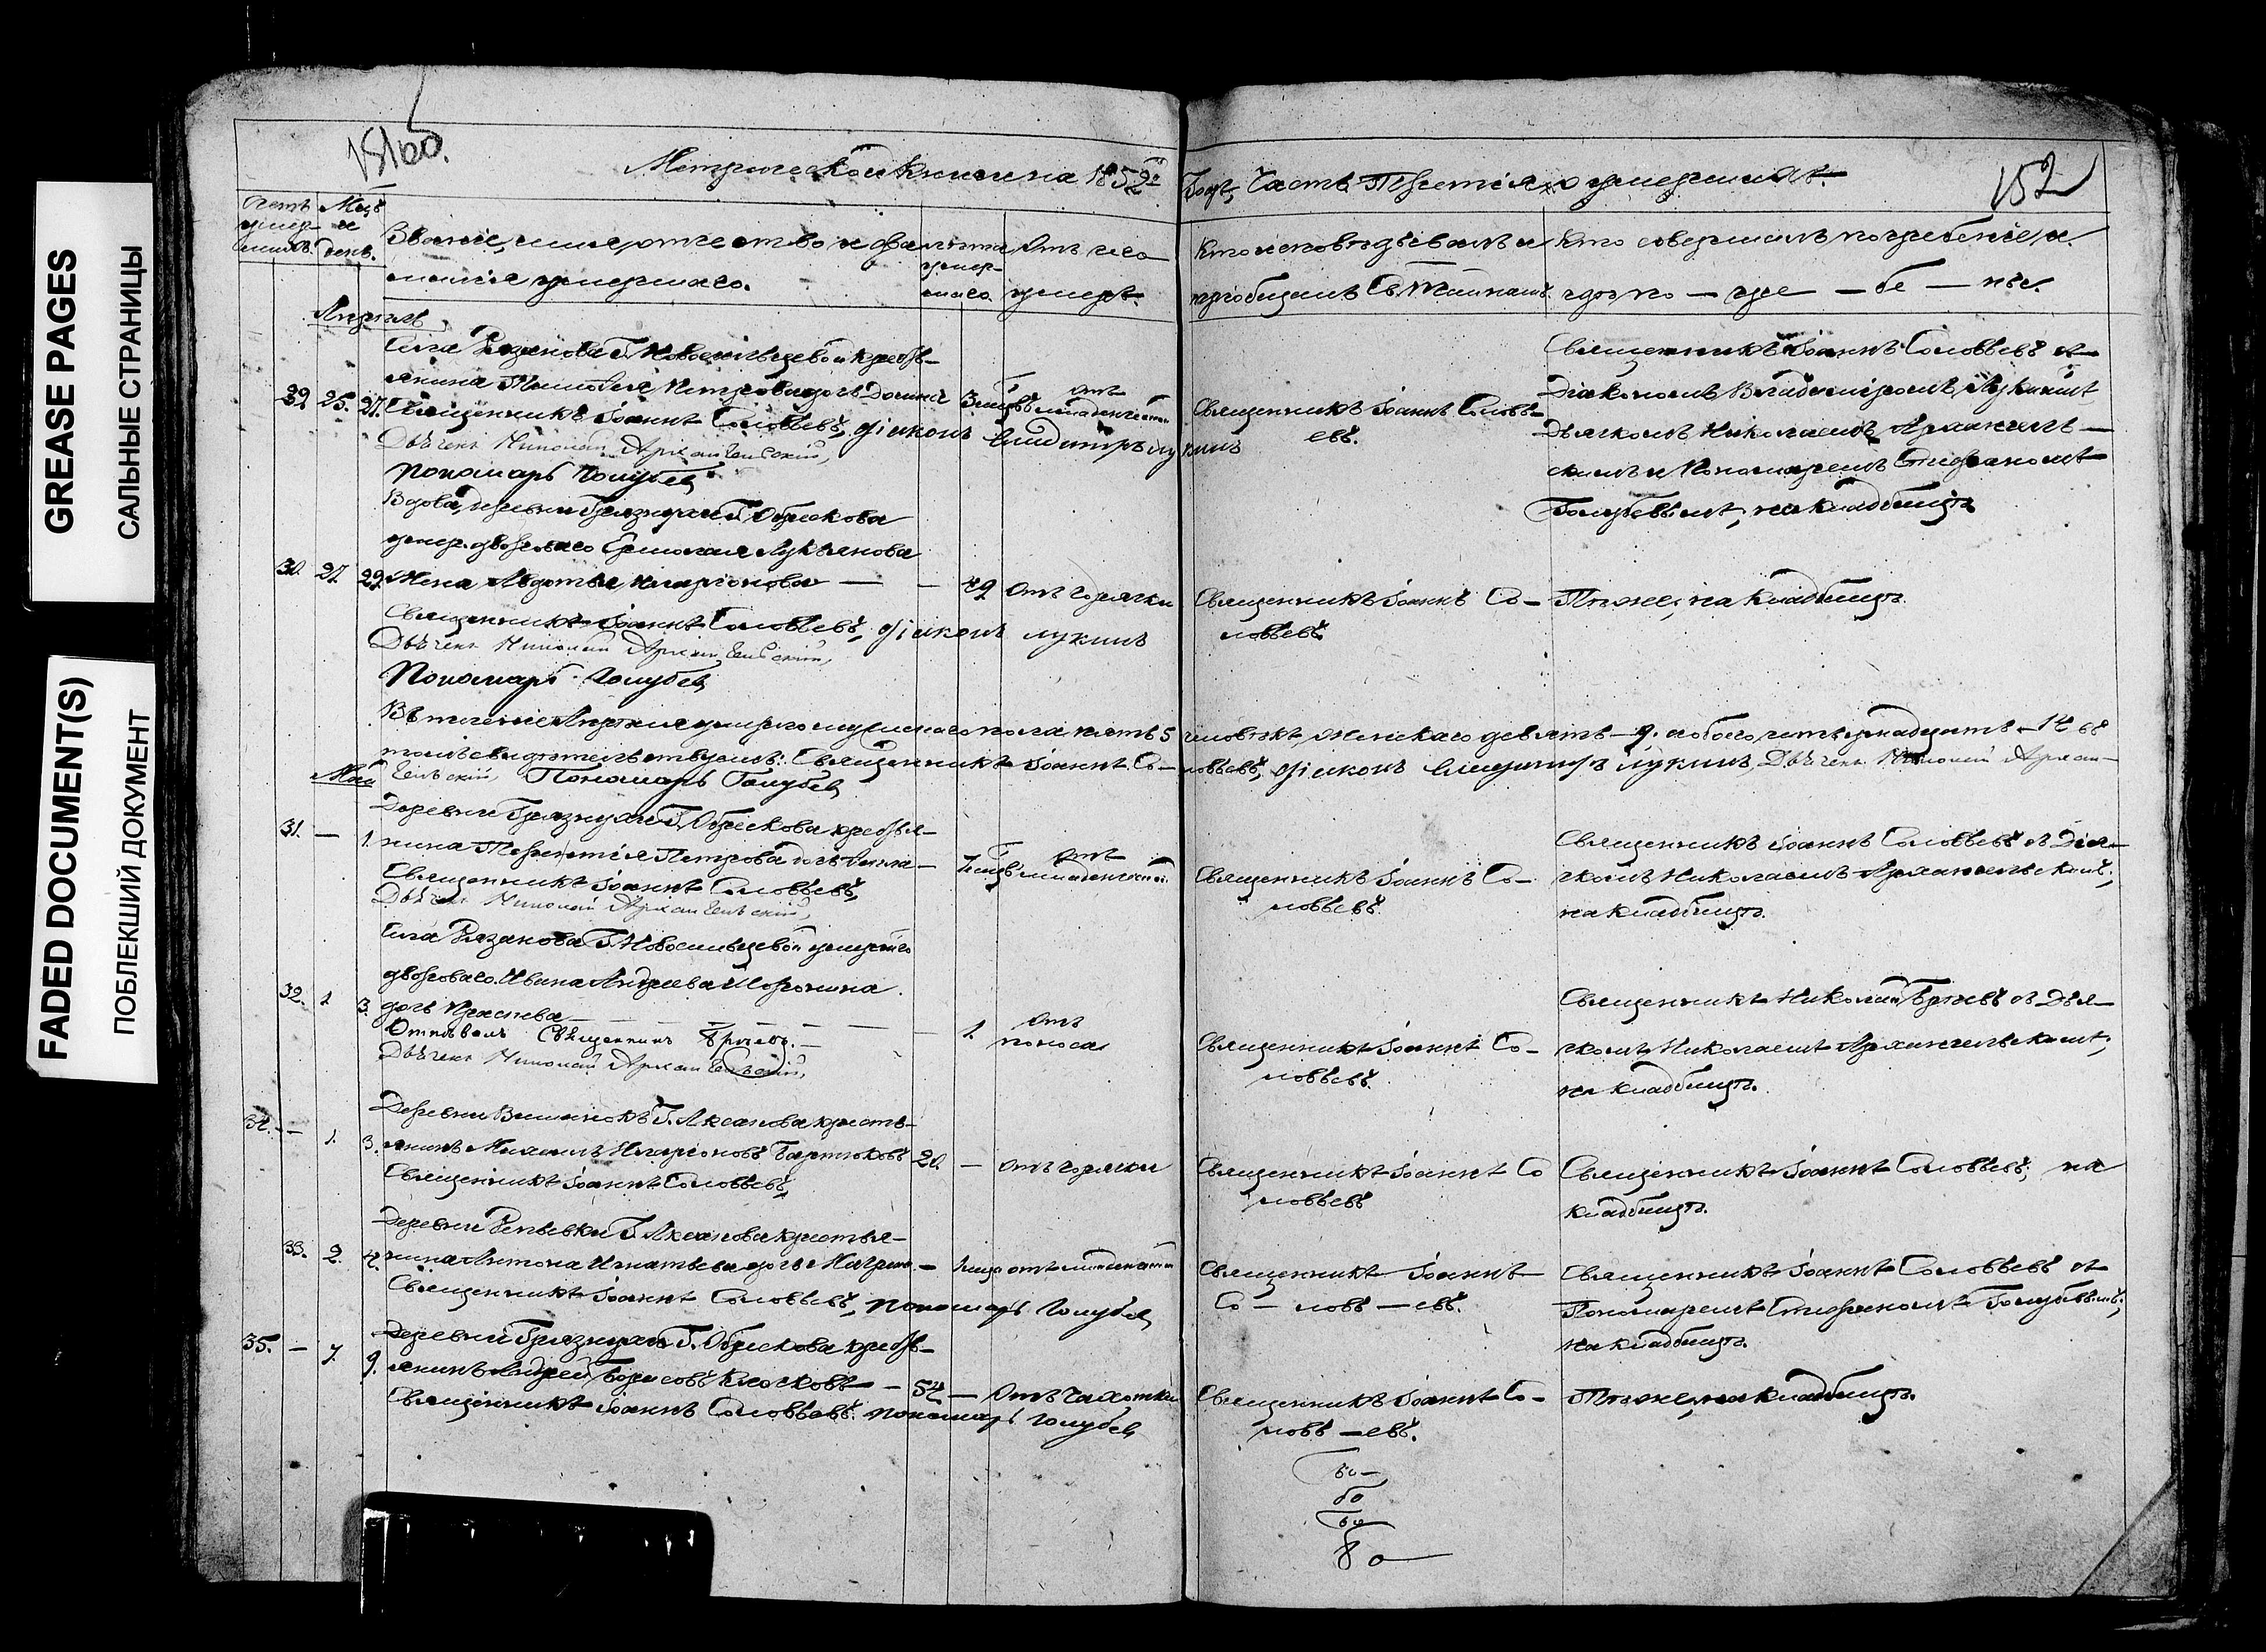 GREASE PAGES
САЛЬНЫЕ СТРАНИЦЫ
FADED DOCUMENT(S)
ПОБЛЕКШИЙ ДОКУМЕНТ
Метрической книги на 1852й
Годъ, Часть Третія, о умершихъ.
152
Счетъ умершихъ.
Мѣц. и день.
Званіе, имя, отчество и фамилія умершаго.
лѣта умершаго
Отъ чего умеръ.
Кто исповѣдывалъ и пріобщалъ Св. Тайнамъ.
Кто совершалъ погребеніе и гдѣ по – гре – бе – ны.
Апрѣль
Села Рязанова Г. Новосильцевой кресть-
янина Тимофея Петрова дочь
29. 25. 27. Священникъ Іоаннъ Соловьевъ, діаконъ Владиміръ Лукинъ
Дьячекъ Николай Архангельскій,
Пономарь Голубев
3 мцъ отъ младенческой
Священникъ Іоаннъ Соловь-
евъ.
Священникъ Іоаннъ Соловьевъ съ
Діакономъ Владиміромъ Лукинымъ
Дьячкомъ Николаемъ Архангель-
скимъ и Пономаремъ Стефаномъ
Голубевымъ, на кладбищѣ.
Вдова, деревни Грязнухи Г. Обрескова
умер. двороваго Ермолая Лукьянова
30. 27. 29. Жена Авдотья Иларіонова — — 49 Отъ горячки
Священникъ Іоаннъ Соловьевъ, діаконъ Лукинъ
Дьячекъ Николай Архангельскій,
Пономарь Голубев
Священникъ Іоаннъ Со-
ловьевъ.
Тѣже, на кладбищѣ.
Въ теченіе Апрѣля умерло мужескаго пола пять 5 человѣкъ, женскаго девять – 9. а обоего четырнадцать – 14 въ
томъ свидѣтельствуемъ: Священникъ Іоаннъ Со-ловьевъ, діаконъ Владиміръ Лукинъ, Дьячекъ Николай Архан-
гельскій, Пономарь Голубев
Май
Деревни Грязнухи Г. Обрескова кресть-
31. — 1. нина Терентія Петрова дочь
Священникъ Іоаннъ Соловьевъ,
Дьячекъ Николай Архангельскій,
мцъ отъ младенческой
Священникъ Іоаннъ Со-
ловьевъ.
Священникъ Іоаннъ Соловьевъ съ Дья-
чкомъ Николаемъ Архангельскимъ,
на кладбищѣ.
Села Рязанова Г. Новосильцевой умершаго
двороваго Ивана Андреева
32. 1. 3. дочь
Отпѣвалъ Священникъ
Дьячекъ Николай Архангельскій,
1. Отъ поноса
Священникъ Іоаннъ Со-
ловьевъ.
Священникъ Николай съ Дья-
чкомъ Николаемъ Архангельскимъ,
на кладбищѣ.
Деревни Г. Аксакова кресть-
34. — 1. 3. янинъ Михаилъ Иларіоновъ 20. — Отъ горячки
Священникъ Іоаннъ Соловьевъ,
Священникъ Іоаннъ Со
ловьевъ
Священникъ Іоаннъ Соловьевъ, на
кладбищѣ.
Деревни Репьевки Г. Аксакова крестья-
33. 2. 4. нина Антона Игнатьева дочь — отъ младенческой
Священникъ Іоаннъ Соловьевъ, Пономарь Голубев
Священникъ Іоаннъ
Со – ловь – евъ.
Священникъ Іоаннъ Соловьевъ съ
Пономаремъ Стефаномъ Голубевымъ,
на кладбищѣ.
Деревни Грязнухи Г. Обрескова кресть-
35. — 7. 9. янинъ Андрей Борисовъ — 54 — Отъ чахотки
Священникъ Іоаннъ Соловьевъ. Пономарь Голубев
Священникъ Іоаннъ Со-
ловь – евъ.
Тѣже, на кладбищѣ.